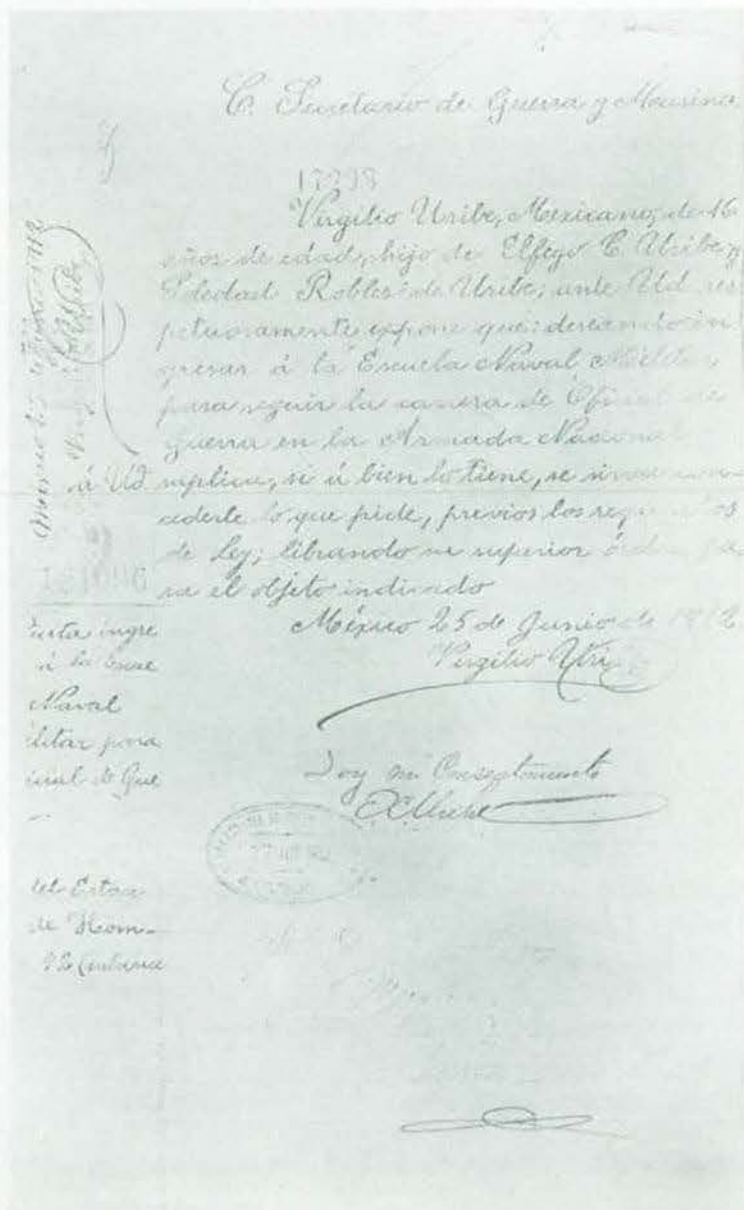 C. Secretario de Guerra y Marina
Virgilio Uribe, Mexicano, de 16
años de edad, hijo de Elfego C. Uribe y
Soledad Robles de Uribe; ante Ud. res
petuosamente expone que: deseando in
gresar á la Escuela Naval Militar,
para seguir la carrera de Oficial de
Guerra en la Armada Nacional
á Ud suplica, si á bien lo tiene, se sirva con
cederle lo que pide, previos los requisitos
de Ley; librando su superior órden pa
ra el objeto indicado
México 25 de Junio de 1912
Virgilio Uribe
Doy mi Conseptimiento
E C Uribe
ingre
á la Escue
Naval
ilitar para
icial de Gue
del Estan
de Hom-